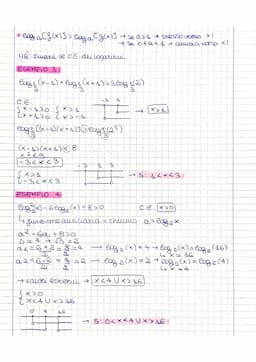 • log_a[f(x)] > log_a[g(x)] → se a>1 → stesso verso >!
→ se 0<a<1 → cambia verso <!
NB: Imporre le C.E. dei logaritmi
ESEMPIO 3:
log_{1/3}(x-1) + log_{1/3}(x+1) > 3log_{1/3}(2)
C.E.
{x-1>0 {x>1
{x+1>0 {x>-1
-1 1
→ x>1
log_{1/3}[(x-1)(x+1)] > log_{1/3}(2³)
(x-1)(x+1) < 8
x² < 9
-3 < x < 3
{x>1
{-3<x<3
-3 1 3
→ S: 1<x<3
ESEMPIO 4:
log₂²(x) - 6log₂(x) + 8 > 0 C.E. x>0
↳ funzione ausiliaria → chiamo a = log₂x
a² - 6a + 8 > 0
Δ = 4 → √Δ = 2
a₁ = 6+2/2 = 8/2 = 4 → log₂(x) = 4 → log₂(x) = log₂(16)
↳ x = 16
a₂ = 6-2/2 = 4/2 = 2 → log₂(x) = 2 → log₂(x) = log₂(4)
↳ x = 4
→ valori esterni → x<4 U x>16
{x>0
{x<4 U x>16
0 4 16
→ S: 0<x<4 U x>16